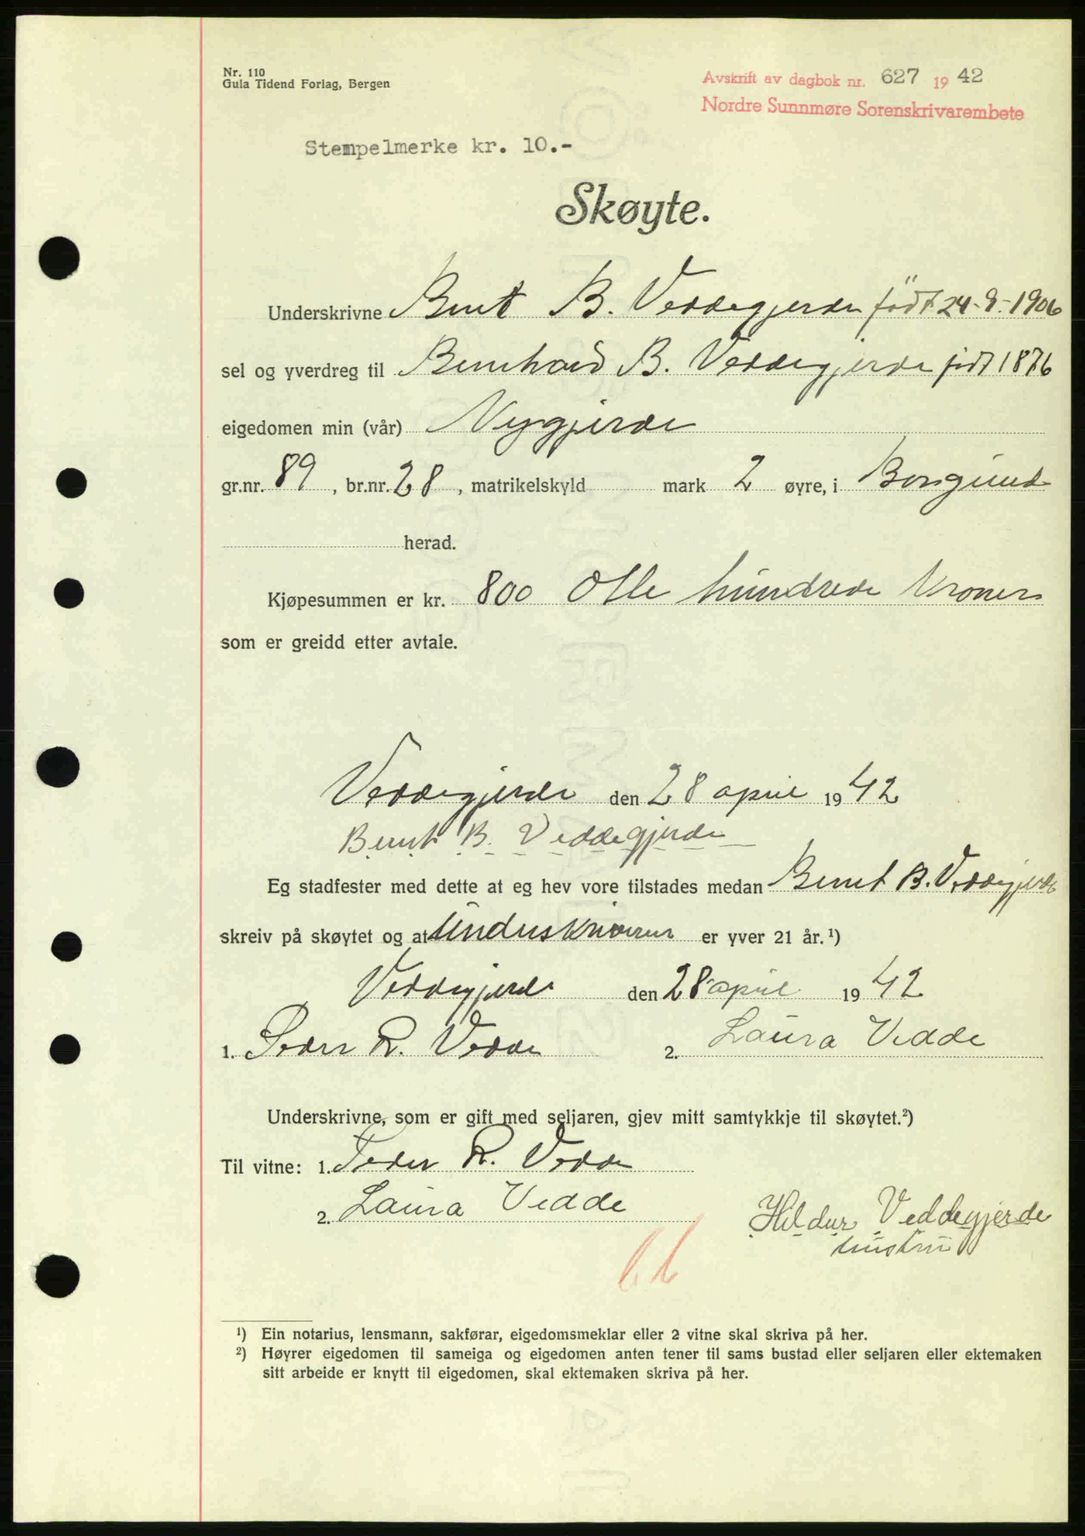 Nr. 110
Gula Tidend Forlag, Bergen
Avskrift av dagbok nr. 627 1942
Nordre Sunnmøre Sorenskrivarembete
Stempelmerke kr. 10.-
Skøyte.
Underskrivne Bernt B. Veddegjerde födt 24-9-1906
sel og yverdreg til Bernhard B. Veddegjerde født 1876
eigedomen min (vår) Nygjerde
gr.nr. 89, br.nr. 28, matrikelskyld mark 2 øyre, i Borgund
herad.
Kjøpesummen er kr. 800 Otte hundrede Kroner
som er greidd etter avtale.
Veddegjerde den 28 april 1942
Bernt B. Veddegjerde
Eg stadfester med dette at eg hev vore tilstades medan Bernt B. Veddegjerde
skreiv på skøytet og at underskriveren er yver 21 år.¹)
Veddegjerde den 28 april 1942
1. Peder R. Vedde 2. Laura Vedde
Underskrivne, som er gift med seljaren, gjev mitt samtykkje til skøytet.²)
Til vitne: 1. Peder R. Vedde
2. Laura Vedde
Hildur Veddegjerde
hustru
¹) Ein notarius, lensmann, sakførar, eigedomsmeklar eller 2 vitne skal skriva på her.
²) Høyrer eigedomen til sameiga og eigedomen anten tener til sams bustad eller seljaren eller ektemaken
sitt arbeide er knytt til eigedomen, skal ektemaken skriva på her.